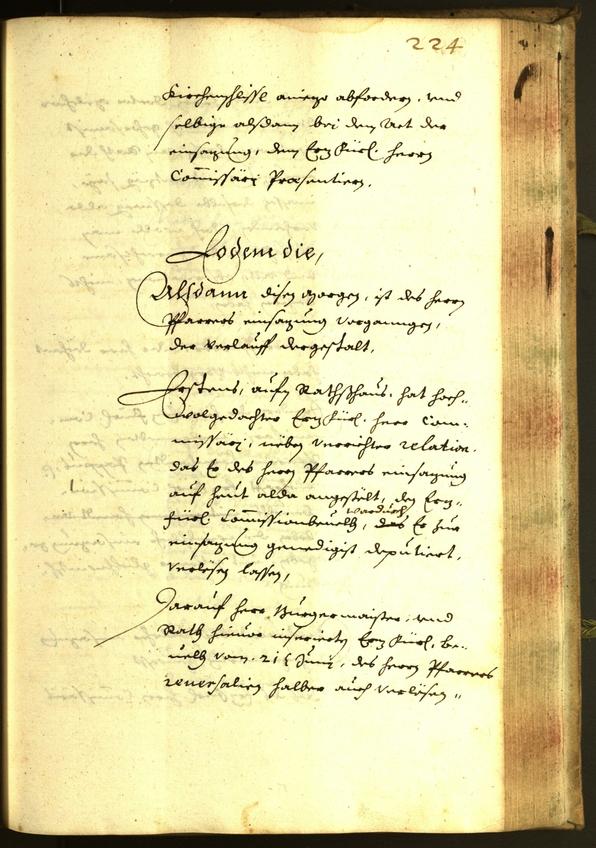 224
Kirchenschlissl aniezo abfordern, vnd
selbige alsdann bei dem Act der
einsazung, dem Erzfürl. herrn
Commissarj Praesentiern.
Eodem die,
Alsdann disen morgen, ist des herrn
Pfarrers einsazung vorganngen,
der verlauff dergestalt,
Erstens, aufm Rathshaus, hat hoch-
wolgedachter Erzfürl. herr Com-
missarj, neben verrichter relation,
das Er des herrn Pfarrers einsazung
auf heut alda angestelt, den Erz-
fürl. Commissionbeuelh, wardurch Er zur
einsazung genedigist deputiert,
verlesen lassen,
Darauf herr Burgermaister, vnd
Rath hieuor inserierten Erzfürl. be-
uelh vom 21 Junj, des herrn Pfarrers
reuersalien halber auch verlesen